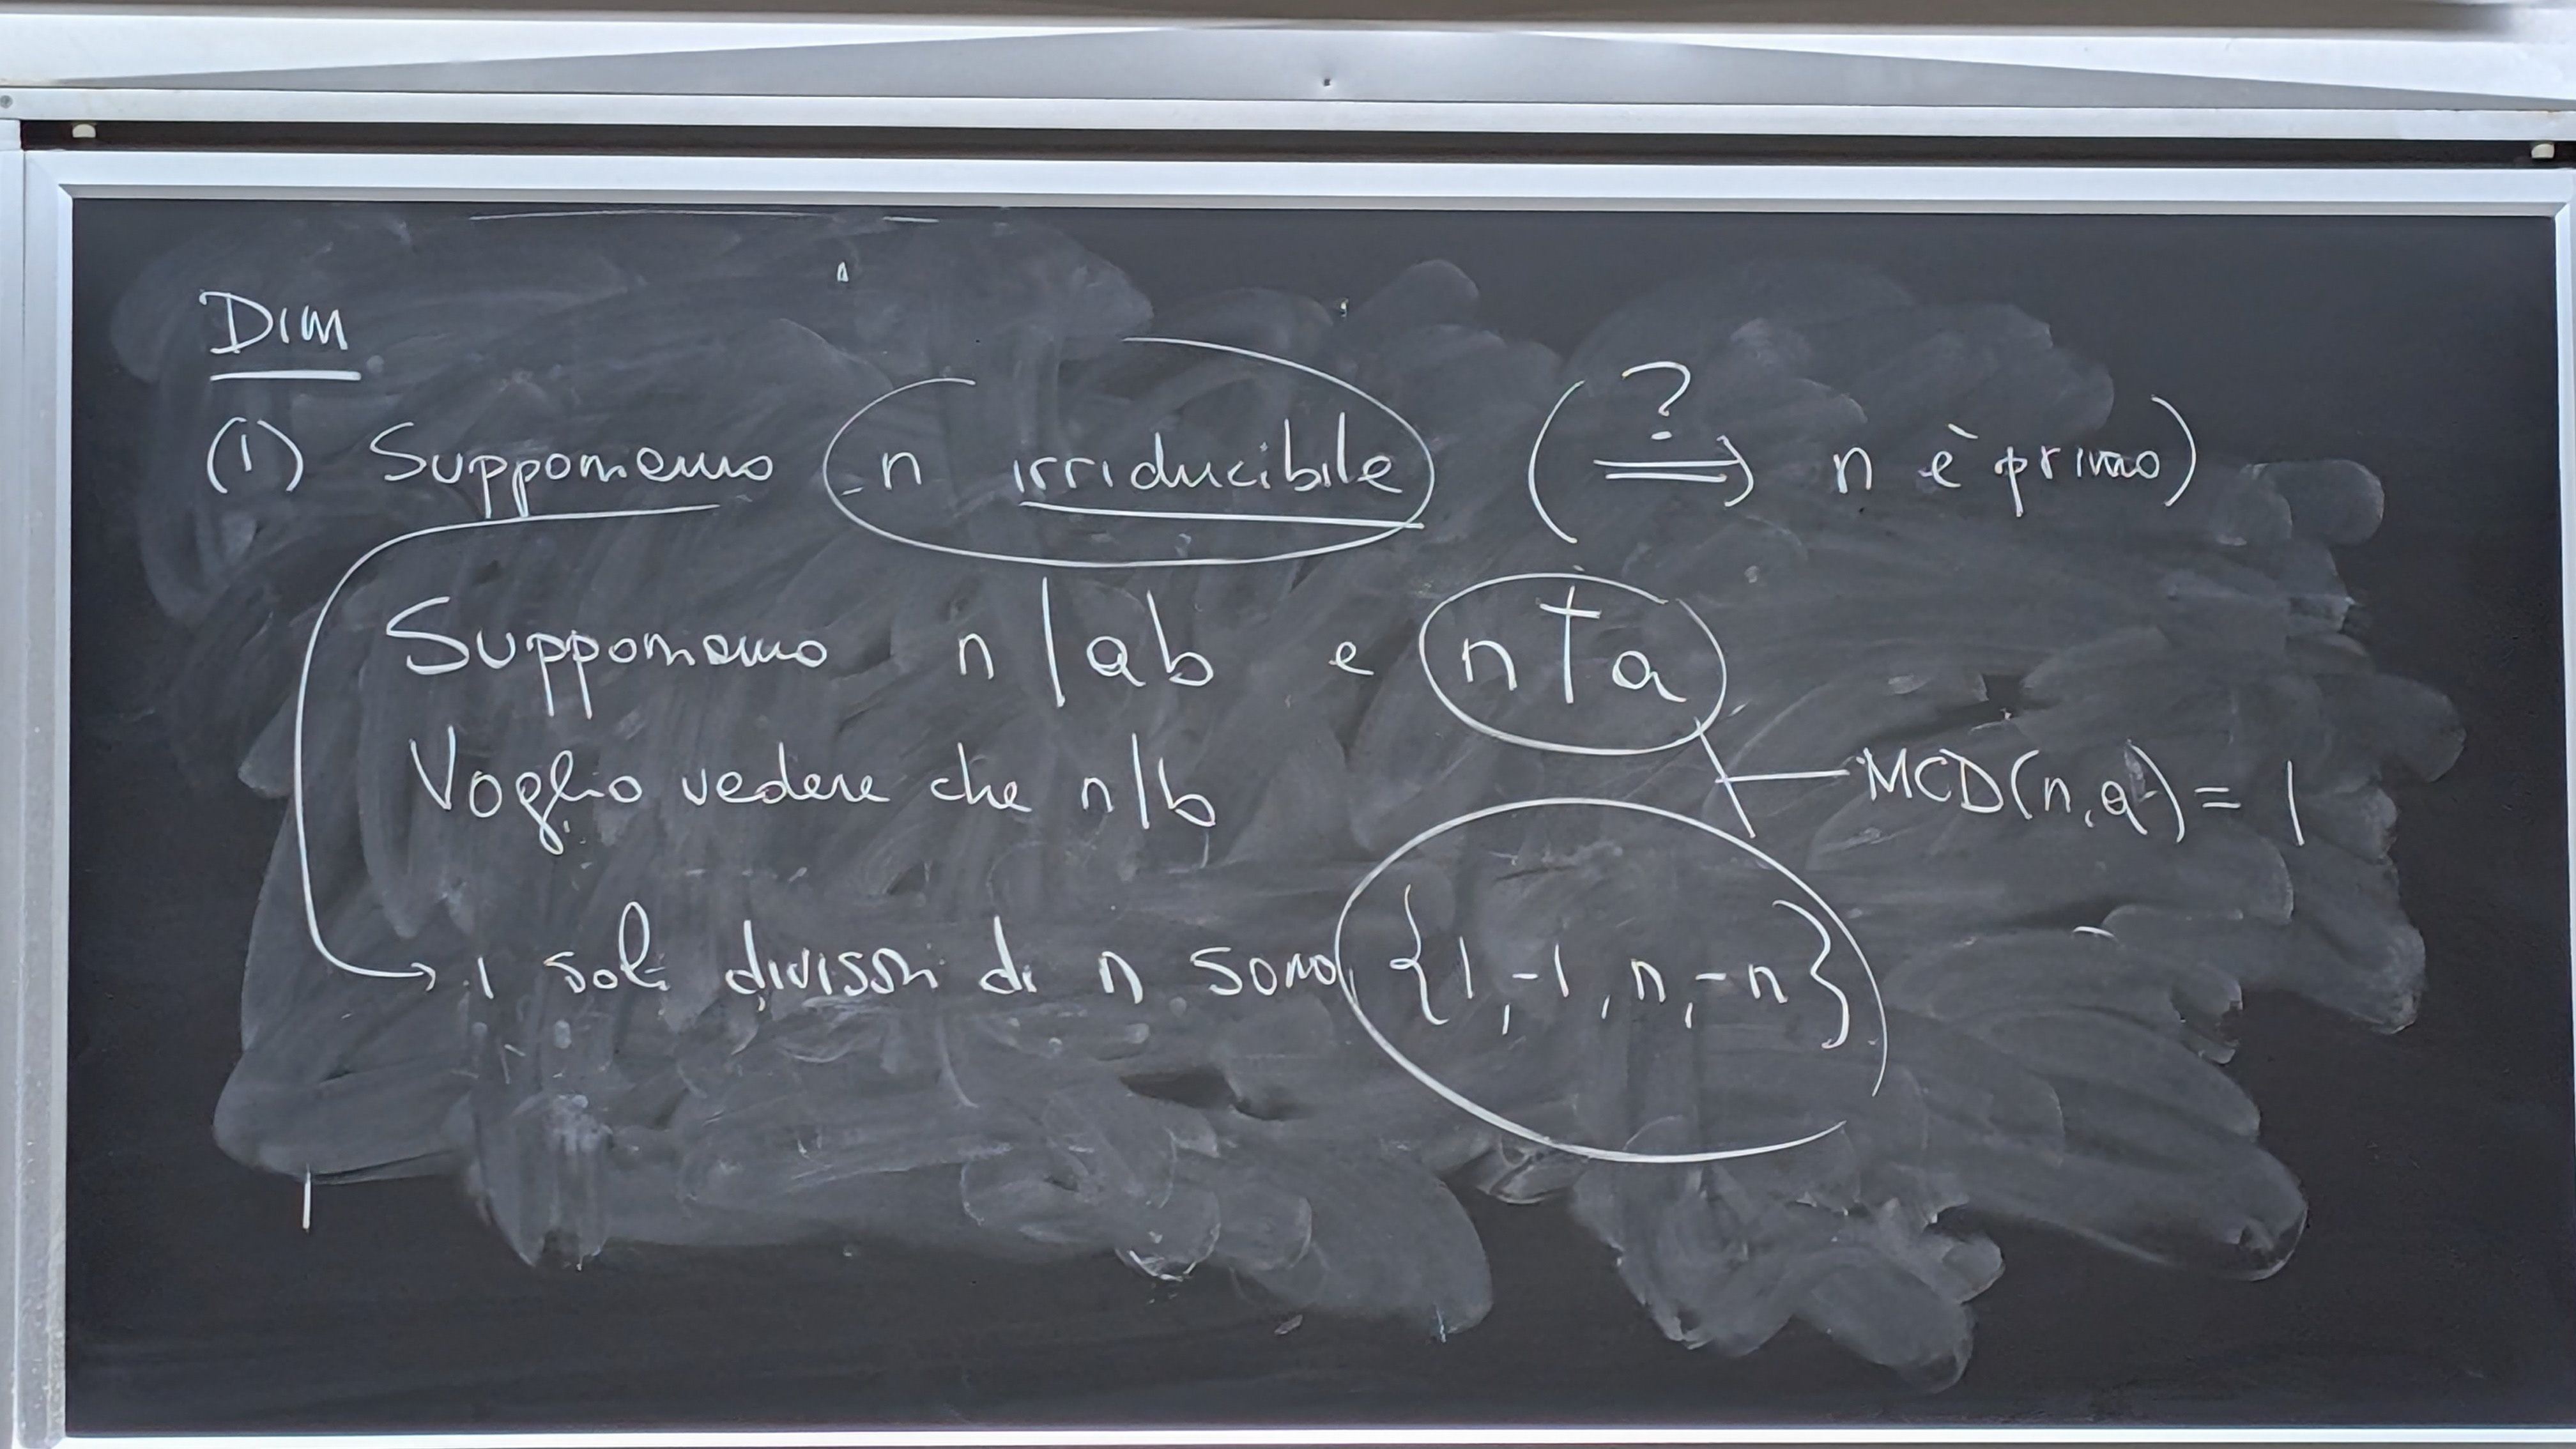 Dim
(1) Supponiamo n irriducibile (?⟹ n è primo)
Supponiamo n | ab e n ∤ a
Voglio vedere che n | b
MCD(n,a) = 1
i soli divisori di n sono {1, -1, n, -n}